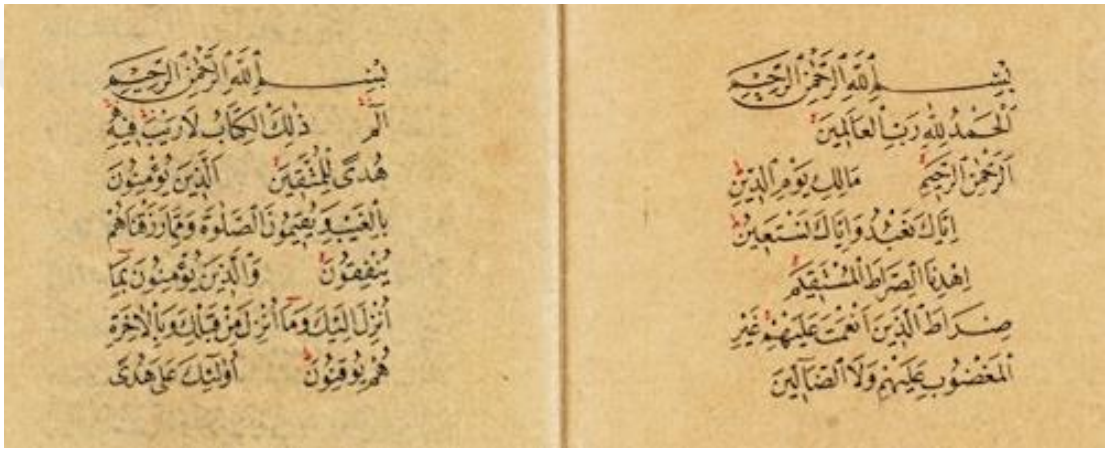 بِسْمِ ٱللّٰهِ ٱلرَّحْمٰنِ ٱلرَّحِيمِ
اَلْحَمْدُ لِلّٰهِ رَبِّ ٱلْعَالَمِينَ
اَلرَّحْمٰنِ ٱلرَّحِيمِ مَالِكِ يَوْمِ ٱلدِّينِ
اِيَّاكَ نَعْبُدُ وَاِيَّاكَ نَسْتَعِينُ
اِهْدِنَا ٱلصِّرَاطَ ٱلْمُسْتَقِيمَ
صِرَاطَ ٱلَّذِينَ اَنْعَمْتَ عَلَيْهِمْ غَيْرِ
ٱلْمَغْضُوبِ عَلَيْهِمْ وَلَا ٱلضَّآلِّينَ
بِسْمِ ٱللّٰهِ ٱلرَّحْمٰنِ ٱلرَّحِيمِ
الٓمٓ ذٰلِكَ ٱلْكِتَابُ لَا رَيْبَ فِيهِ
هُدًى لِلْمُتَّقِينَ اَلَّذِينَ يُؤْمِنُونَ
بِالْغَيْبِ وَيُقِيمُونَ ٱلصَّلٰوةَ وَمِمَّا رَزَقْنَاهُمْ
يُنْفِقُونَ وَٱلَّذِينَ يُؤْمِنُونَ بِمَٓا
اُنْزِلَ اِلَيْكَ وَمَٓا اُنْزِلَ مِنْ قَبْلِكَ وَبِالْاٰخِرَةِ
هُمْ يُوقِنُونَ اُولٰٓئِكَ عَلٰى هُدًى